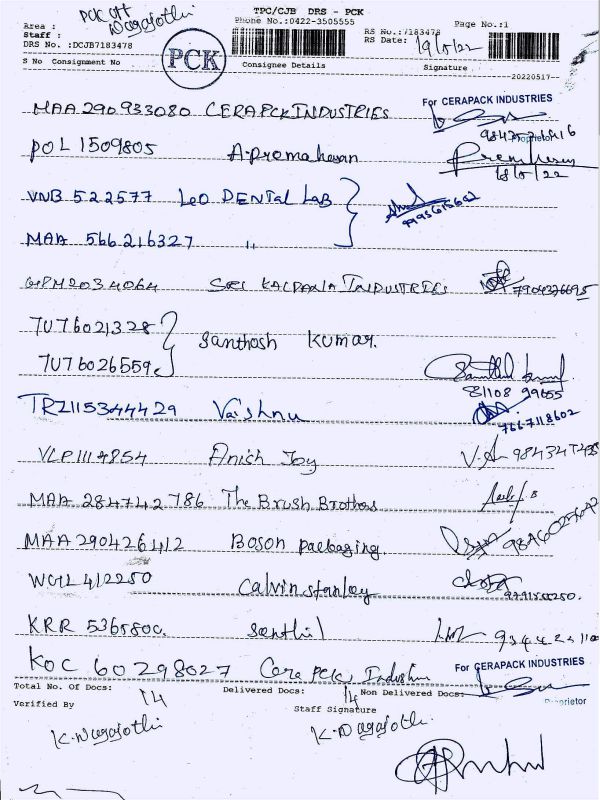 TPC/CJB DRS - PCK
PCK off
Nagajothi
Phone No.:0422-3505555
Page No.:1
Area :
Staff :
DRS No. :DCJB7183478
RS No.:7183478
RS Date: 19/5/22
PCK
S No Consignment No
Consignee Details
Signature
20220517
MAA 290933080 CERAPCK INDUSTRIES
For CERAPACK INDUSTRIES
Proprietor
POL 1509805 A. Promaharan
18/5/22
VNB 522577 Leo DENTAL LAB
MAA 566216327 "
2034064 SRI KALPANA INDUSTRIES
7U76021328 Santhosh Kumar.
7U76026559
81108 99655
TRZ115344429 Vaishnu
7667118602
VLP1114854 Anish Joy
MAA 284742786 The Brush Brothers
MAA 290426412 Boson packaging.
412250 Calvin stanley
KRR 5365800. Santhil
KOC 60298027 Cera Pck Industries
For CERAPACK INDUSTRIES
Proprietor
Total No. Of Docs: 14 Delivered Docs: 14 Non Delivered Docs:
Verified By
Staff Signature
K. Nagajothi
K. Nagajothi